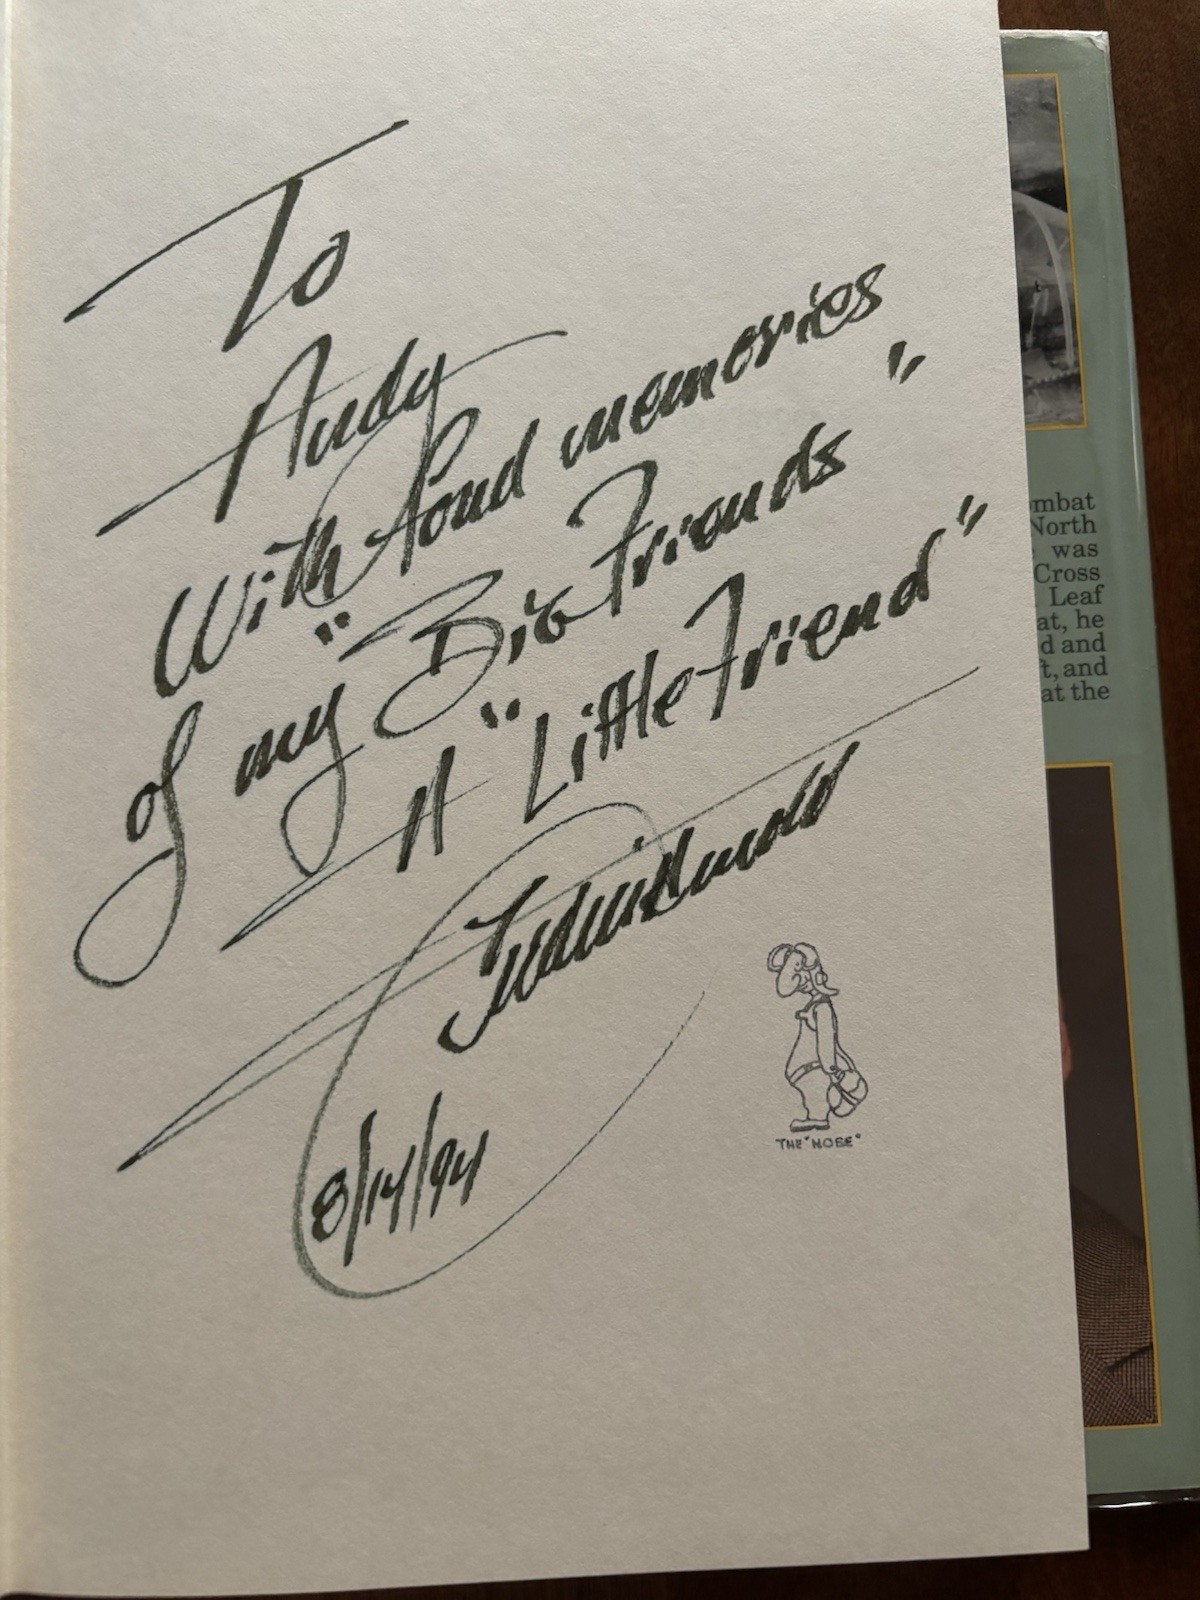 To
Andy
With fond memories
of my "Big Friends"
A "Little Friend"
Fredric Arnold
8/14/94
THE "NOSE"
ombat
North
was
Cross
Leaf
at, he
d and
t, and
at the